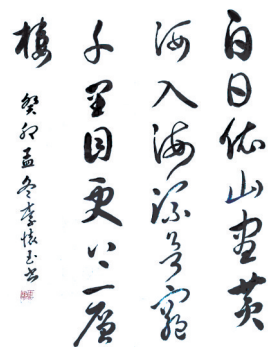 白日依山尽黄
河入海流欲窮
千里目更上一層
楼
癸卯孟冬李懷玉书